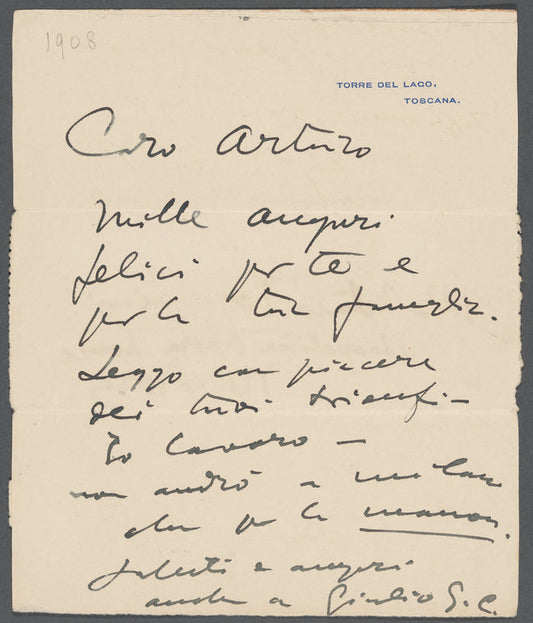 1908
TORRE DEL LAGO,
TOSCANA.
Caro Arturo
Mille auguri
felici per te e
per la tua famiglia.
Leggo con piacere
dei tuoi trionfi -
Io lavoro -
non andrò a Milano
che per la Manon.
saluti e auguri
anche a Giulio G. C.